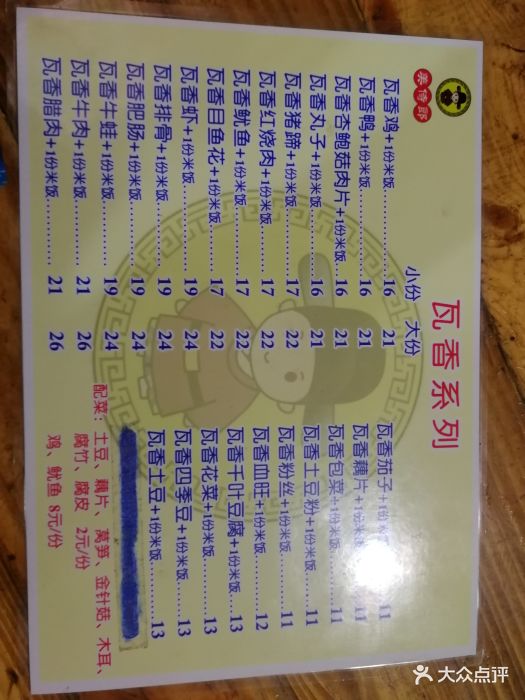 姜侍郎
瓦香系列
小份 大份
瓦香鸡+1份米饭............16 21
瓦香鸭+1份米饭............16 21
瓦香杏鲍菇肉片+1份米饭...16 21
瓦香丸子+1份米饭............16 21
瓦香猪蹄+1份米饭............17 22
瓦香红烧肉+1份米饭.........17 22
瓦香鱿鱼+1份米饭............17 22
瓦香目鱼花+1份米饭.........17 22
瓦香虾+1份米饭...............19 24
瓦香排骨+1份米饭............19 24
瓦香肥肠+1份米饭............19 24
瓦香牛蛙+1份米饭............19 24
瓦香牛肉+1份米饭............21 26
瓦香腊肉+1份米饭............21 26
瓦香茄子+1份米饭......11
瓦香藕片+1份米饭......11
瓦香包菜+1份米饭......11
瓦香土豆粉+1份米饭...11
瓦香粉丝+1份米饭......11
瓦香血旺+1份米饭......12
瓦香千叶豆腐+1份米饭...13
瓦香花菜+1份米饭......13
瓦香四季豆+1份米饭...13
瓦香土豆+1份米饭......13
配菜：土豆、藕片、莴笋、金针菇、木耳、
腐竹、腐皮 2元/份
鸡、鱿鱼 8元/份
大众点评